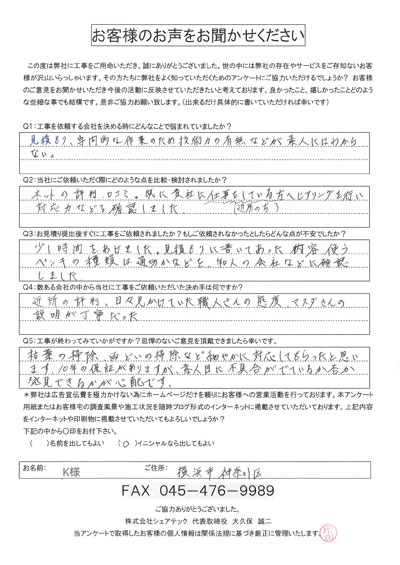 お客様のお声をお聞かせください
この度は弊社に工事をご用命いただき、誠にありがとうございました。世の中には弊社の存在やサービスをご存知ないお客
様が沢山いらっしゃいます。その方たちに弊社をよく知っていただくためのアンケートにご協力いただけるでしょうか？ お客様
のご意見をお聞かせいただき今後の活動に反映させていただきたいと考えております。良かったこと、嬉しかったことどのよう
な些細な事でも結構です。是非ご協力お願い致します。(出来るだけ具体的に書いていただければ幸いです)
Q1：工事を依頼する会社を決める時にどんなことで悩まれていましたか？
見積もり、専門的な作業のため技術力の有無などが素人にはわから
ない。
Q2：当社にご依頼いただく際にどのような点を比較・検討されましたか？
ネットの評判、口コミ。既に貴社に仕事をしている方へヒアリングを行い
対応力なども確認しました。(近所の方)
Q3：お見積り提出後すぐに工事をご依頼されましたか？もしご依頼されなかったとしたらどんな点が不安でしたか？
少し時間をあけました。見積もりに書いてあった内容、使う
ペンキの種類は適切かなどを、知人の会社などに確認
しました。
Q4：数ある会社の中から当社に工事をご依頼いただいた決め手は何ですか？
近所の評判、日々見かけていた職人さんの態度、マスダさんの
説明が丁寧だった
Q5：工事が終わってみていかがですか？忌憚のないご意見を頂戴できましたら幸いです。
枯葉の掃除、雨どいの掃除など細やかに対応してもらったと思い
ます。10年の保証がありますが、素人目に不具合がでているか否か
発見できるかが心配です。
＊弊社は広告宣伝費を極力かけない為にホームページだけを頼りにお客様への営業活動を行っております。本アンケート
用紙またはお客様宅の調査風景や施工状況を随時ブログ形式のインターネットに掲載させていただいております。上記内容
をインターネットや印刷物に掲載させていただいてもよろしいでしょうか？
下記の中から〇印をお付下さい。
(　)名前を出してもよい　(〇)イニシャルなら出してもよい
お名前：　K様　ご住所：　横浜市神奈川区
FAX 045-476-9989
ご協力ありがとうございました。
株式会社シェアテック 代表取締役 大久保 誠二
当アンケートで取得したお客様の個人情報は関係法規に基づき厳正に管理いたします。